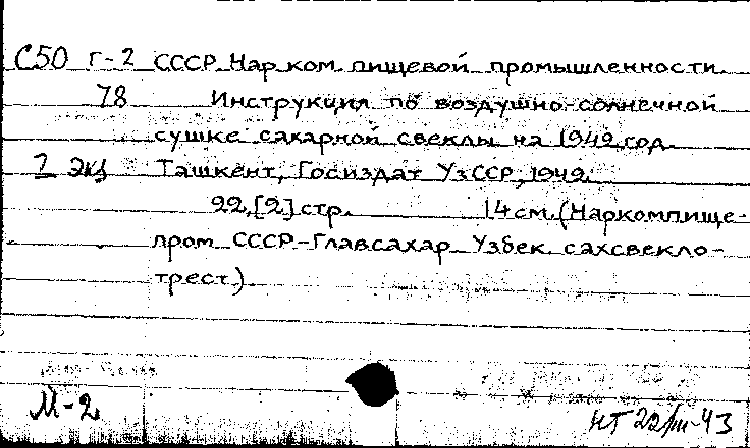 С50 Г-2 СССР Нар.ком. пищевой промышленности.
78 Инструкция по воздушно-солнечной
сушке сахарной свеклы на 1942 год.
1 экз Ташкент, Госиздат УзССР, 1942.
22,[2] стр. 14 см. (Наркомпище-
пром СССР-Главсахар Узбек. сахсвекло-
трест.)
М-2
НТ 22/III-43